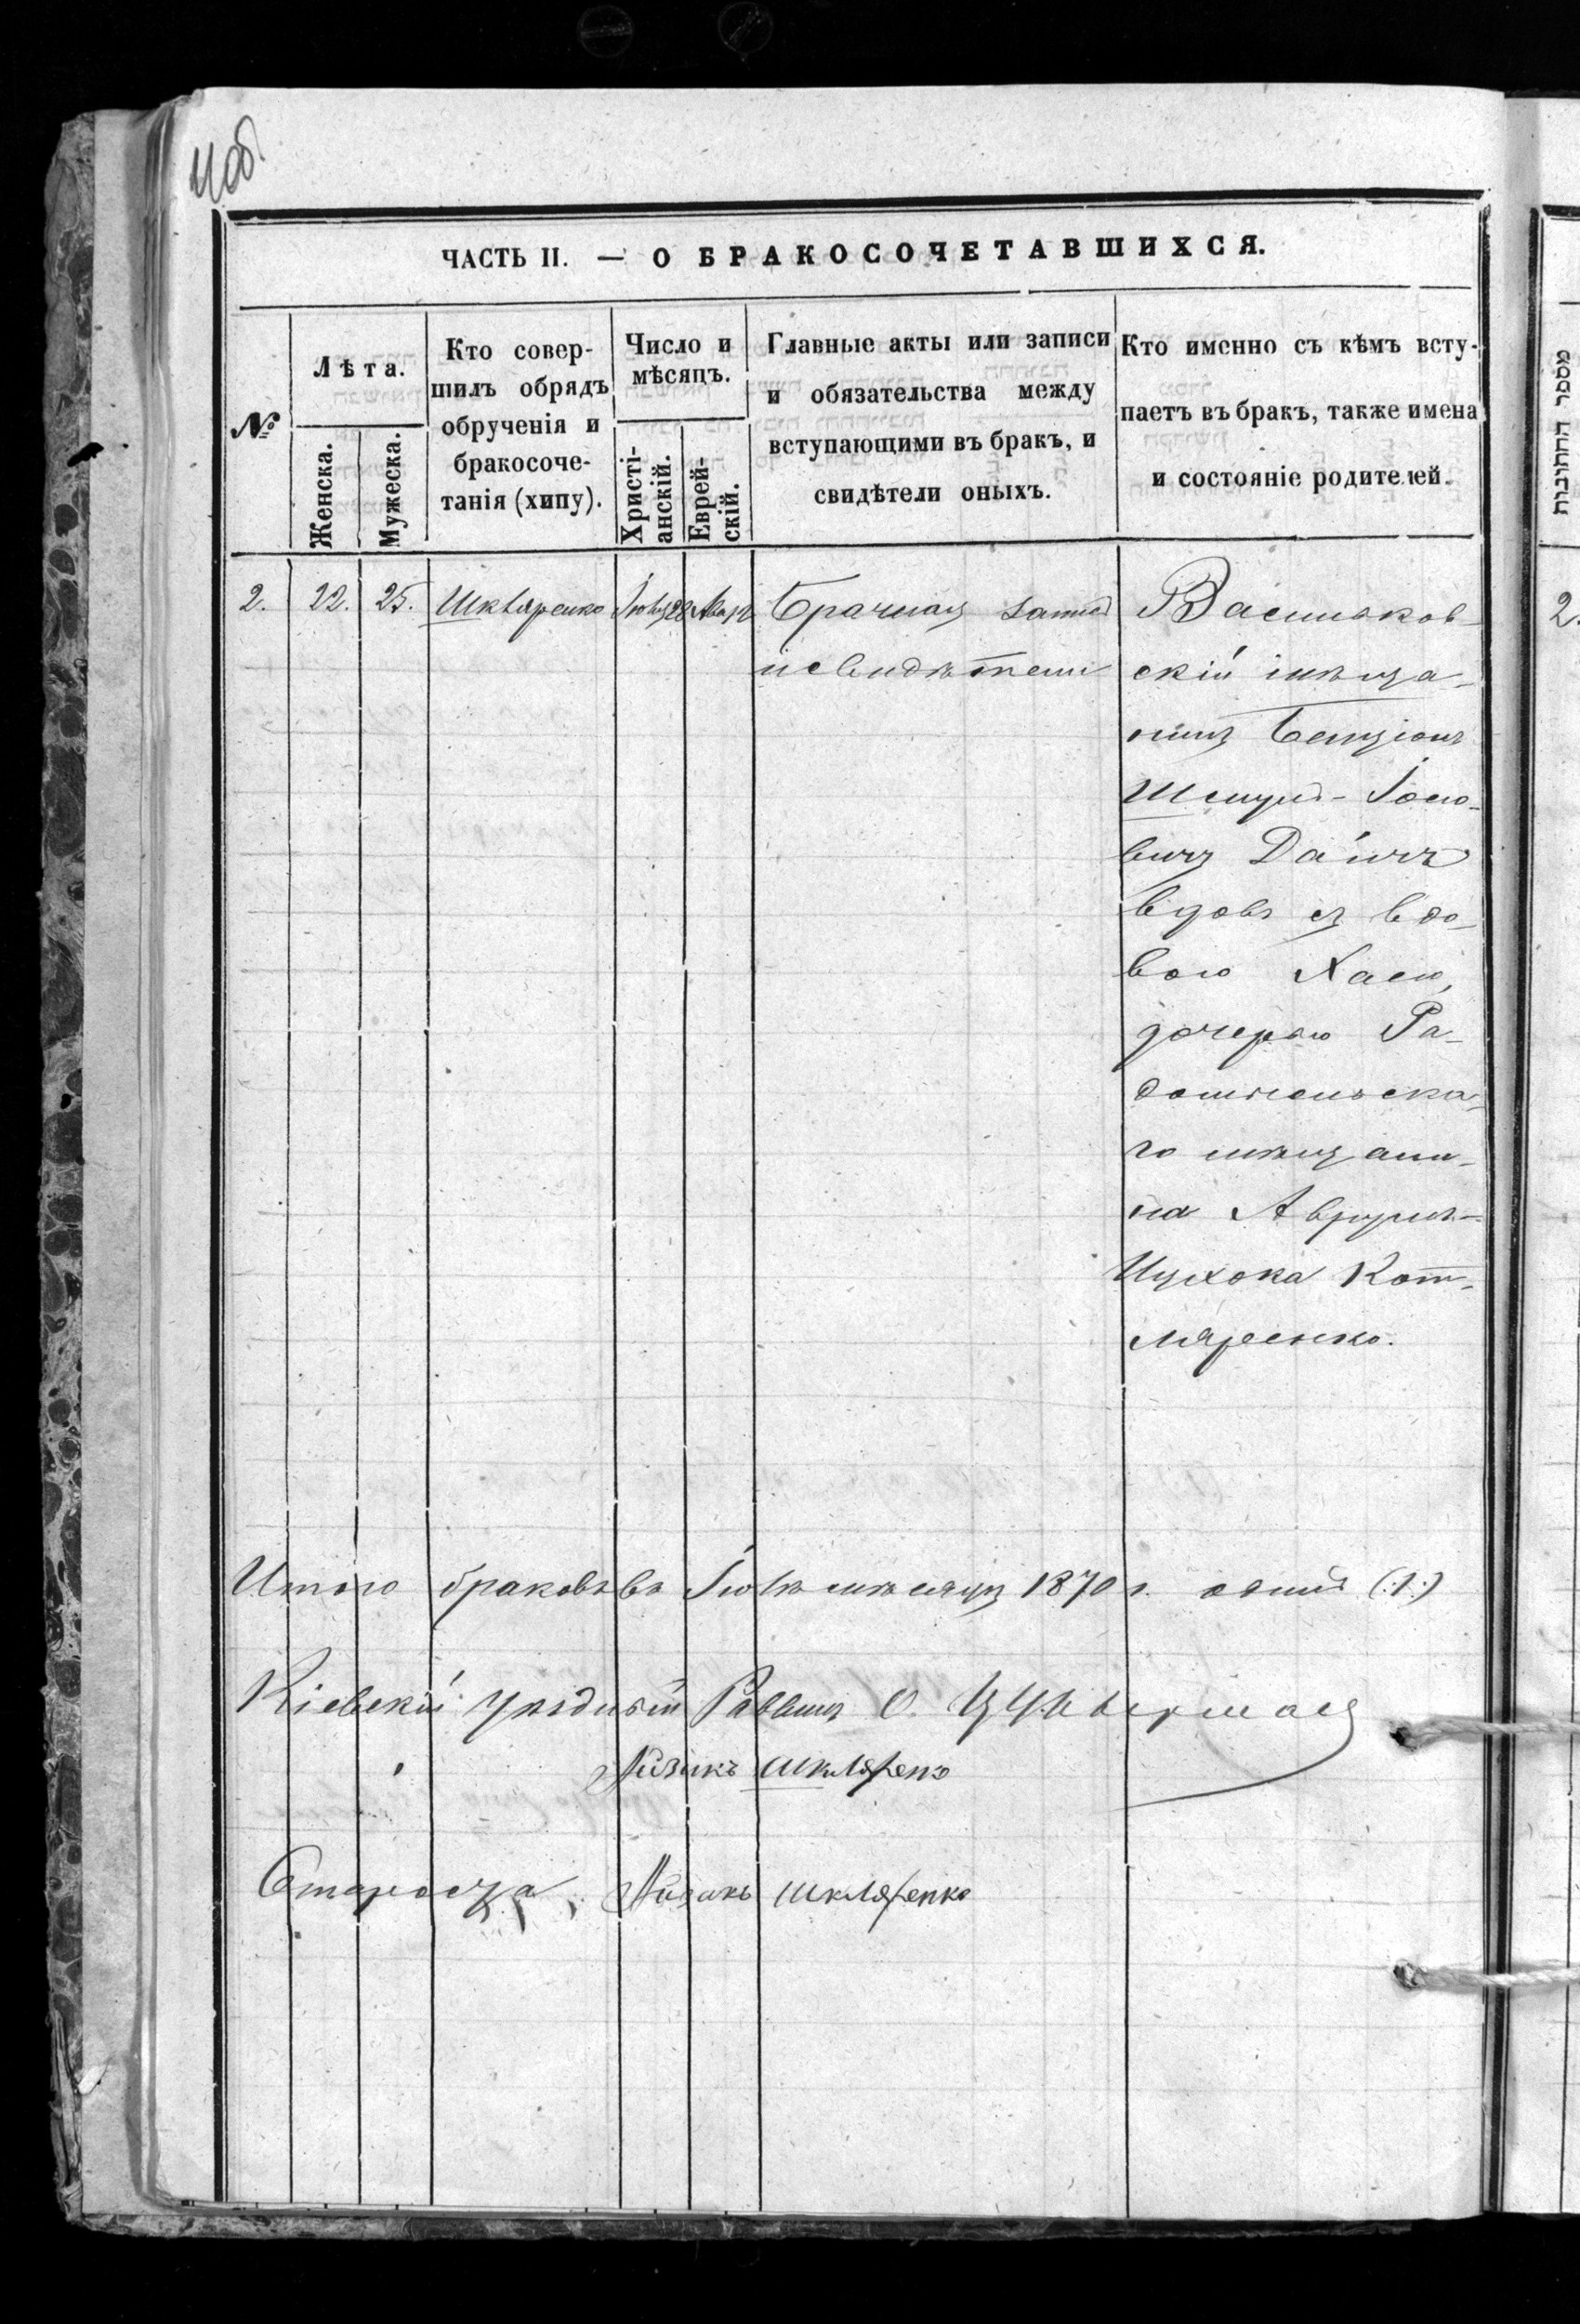 4 об.
ЧАСТЬ II. — О БРАКОСОЧЕТАВШИХСЯ.
№
Лѣта.
Женска.
Мужеска.
Кто совер-
шилъ обрядъ
обрученія и
бракосоче-
танія (хипу).
Число и
мѣсяцъ.
Христі-
анскій.
Еврей-
скій.
Главные акты или записи
и обязательства между
вступающими въ бракъ, и
свидѣтели оныхъ.
Кто именно съ кѣмъ всту-
паетъ въ бракъ, также имена
и состояніе родителей.
מספר החתונות
2.
22.
25.
Шкляренко
Брачная запись
и свидѣтели
Васильков-
скій мѣща-
нинъ Бенціонъ
Іосіо-
вичъ
вдовъ съ вдо-
вою Хаею,
дочерью Ра-
домысльска-
го мѣщани-
на Аврумъ-
Ицхока Кот-
ляренко.
2.
Итого браковъ въ Іюлѣ мѣсяцѣ 1870 г. одинъ (:1:)
Кіевскій уѣздный Раввинъ О. Цукерманъ
Айзикъ Шкляренко
Староста Айзикъ Шкляренко